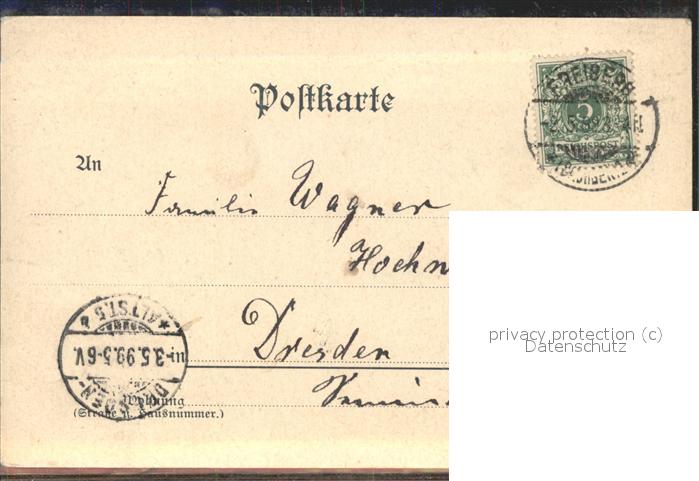 Postkarte
FREIBERG
5
REICHSPOST
(SACHSEN)
An
Familie Wagner
Hochw
Dresden
ALTST. 5
3.5.99. 5-6V.
DRESDEN-
Wohnung
(Straße u. Hausnummer.)
privacy protection (c)
Datenschutz